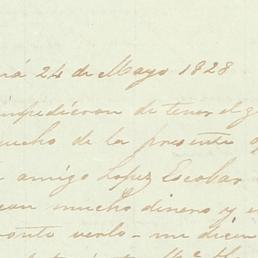 má 24 de Mayo 1828
impidieron de tener el g
mucho de la presente o
amigo Lopez Escobar
can mucho dinero y
onto verlo - me dicen